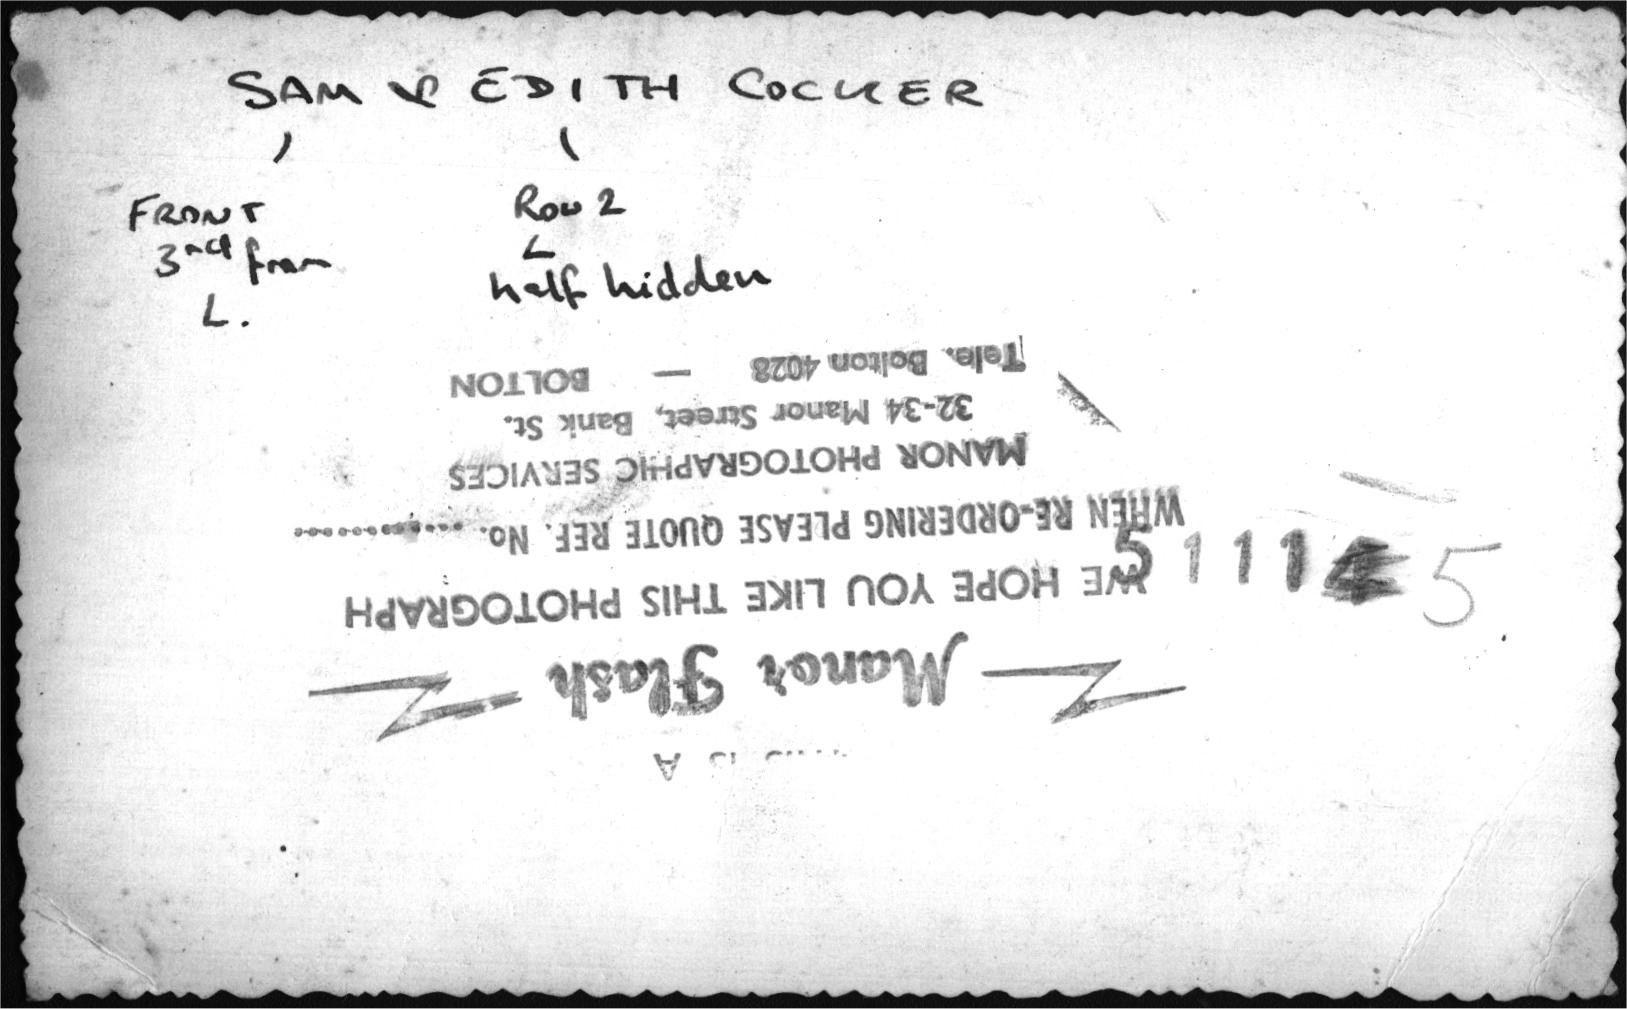 SAM & EDITH COCKER
FRONT
3rd from
L.
Row 2
L
half hidden
THIS IS A
Manor Flash
WE HOPE YOU LIKE THIS PHOTOGRAPH
WHEN RE-ORDERING PLEASE QUOTE REF. No. ..............
5 1 1 1 4 5
MANOR PHOTOGRAPHIC SERVICES
32-34 Manor Street, Bank St.
Tele. Bolton 4028 — BOLTON